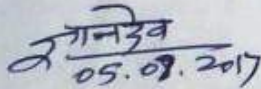 ज्ञानदेव
05.09.2017